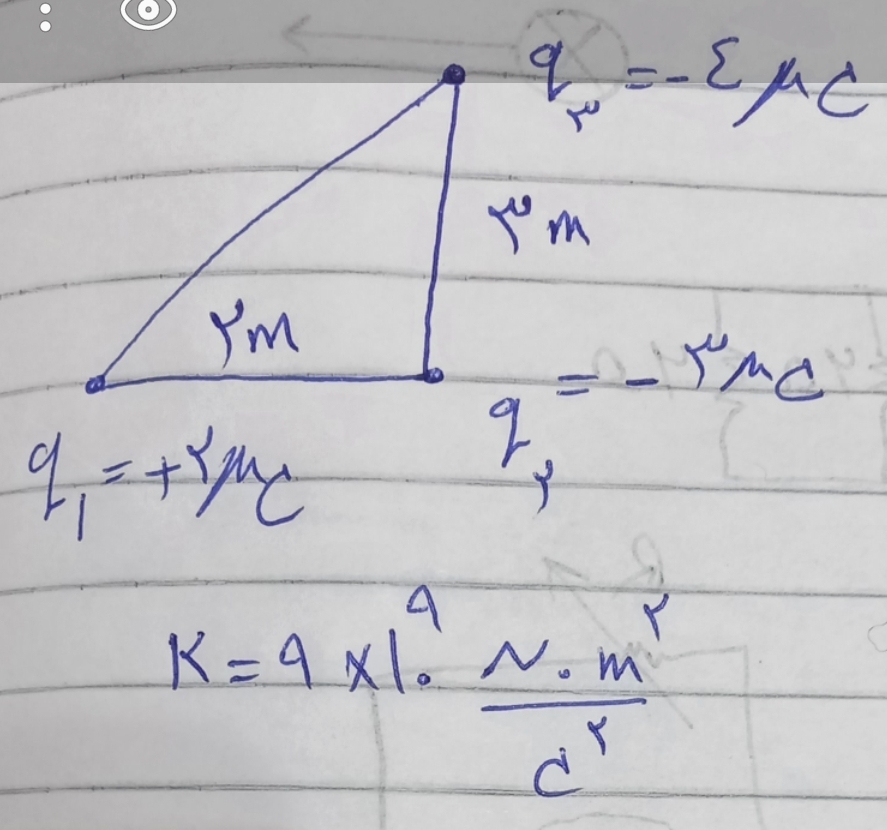 q۳ = -٤ μC
۳m
۲m
q۲ = - ۳μC
q۱ = +۲μC
K = ۹ × ۱۰^۹ N . m^۲ / C^۲